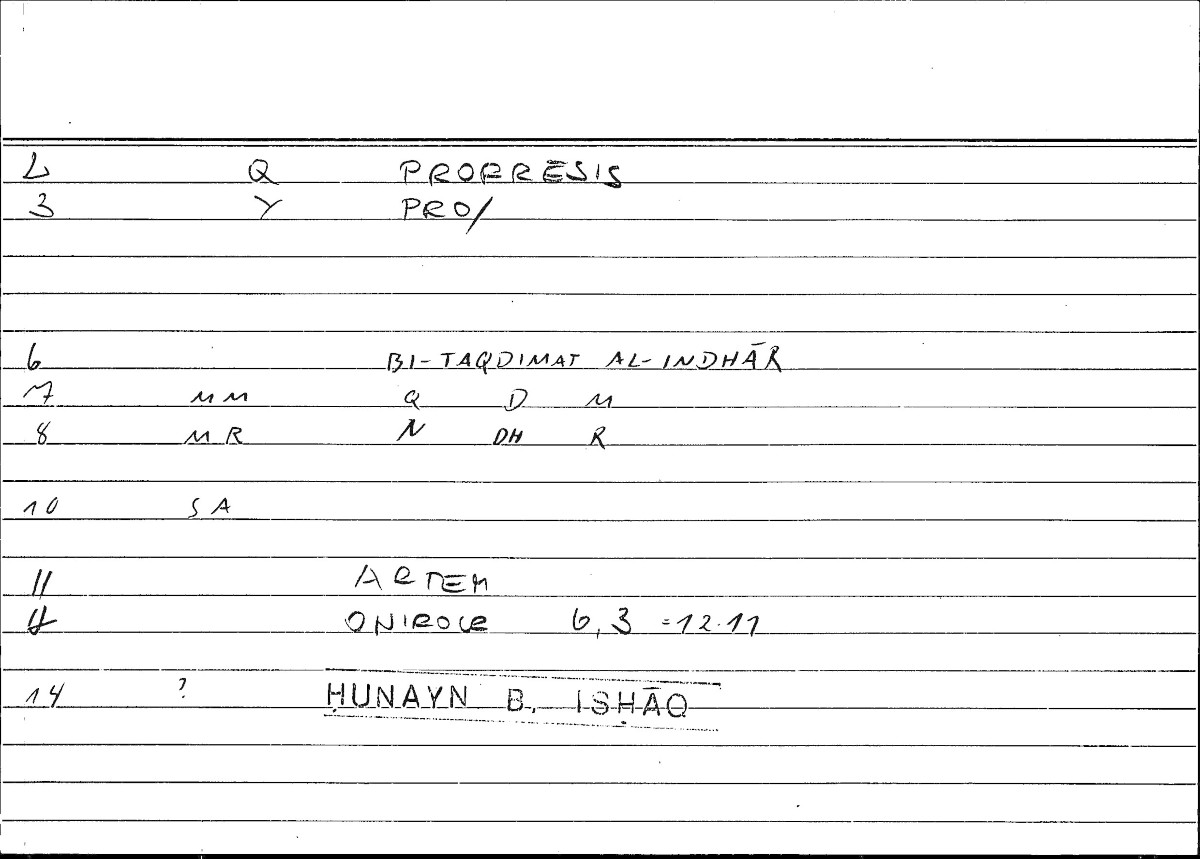 2 Q PRORRESIS
3 Y PRO/
6 BI-TAQDIMAT AL-INDHĀR
7 MM Q D M
8 MR N DH R
10 SA
11 ARTEM
12 ONIROCR 6,3 =12.11
14 ? ḤUNAYN B. ISḤĀQ